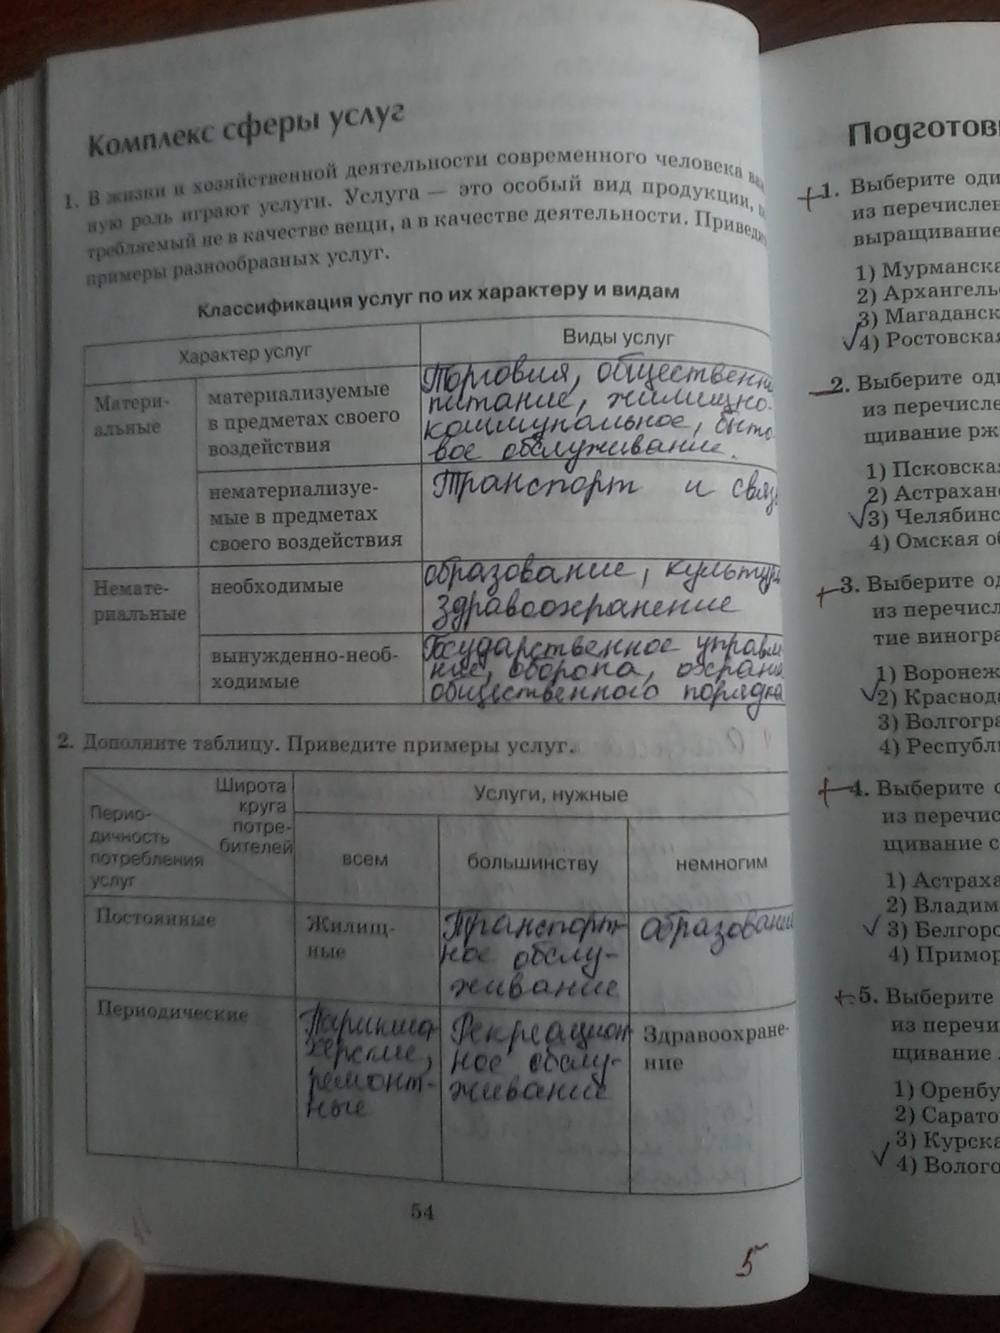 Комплекс сферы услуг
1. В жизни и хозяйственной деятельности современного человека
ную роль играют услуги. Услуга — это особый вид продукции,
требляемый не в качестве вещи, а в качестве деятельности. Приведи
примеры разнообразных услуг.
Классификация услуг по их характеру и видам
Характер услуг
Виды услуг
Матери-
альные
материализуемые
в предметах своего
воздействия
Торговля, общественн
питание, жилищно-
коммунальное, быто
вое обслуживание.
нематериализуе-
мые в предметах
своего воздействия
Транспорт и связ
Немате-
риальные
необходимые
образование, культур
здравоохранение
вынужденно-необ-
ходимые
Государственное управл
ние, оборона, охрана
общественного порядка
2. Дополните таблицу. Приведите примеры услуг.
Широта
круга
потре-
бителей
Перио-
дичность
потребления
услуг
Услуги, нужные
всем
большинству
немногим
Постоянные
Жилищ-
ные
Транспорт-
ное обслу-
живание
образовани
Периодические
Парикма
херские,
ремонт-
ные
Рекреацион
ное обслу-
живание
Здравоохране-
ние
54
5
Подготов
+1. Выберите оди
из перечислен
выращивание
1) Мурманска
2) Архангель
3) Магаданск
4) Ростовская
2. Выберите оди
из перечисле
щивание рж
1) Псковская
2) Астрахан
3) Челябинс
4) Омская об
+3. Выберите од
из перечисл
тие виногра
1) Воронеж
2) Краснода
3) Волгогра
4) Республ
+4. Выберите о
из перечис
щивание с
1) Астраха
2) Владим
3) Белгоро
4) Примор
+5. Выберите
из перечи
щивание
1) Оренбу
2) Сарато
3) Курска
4) Волого